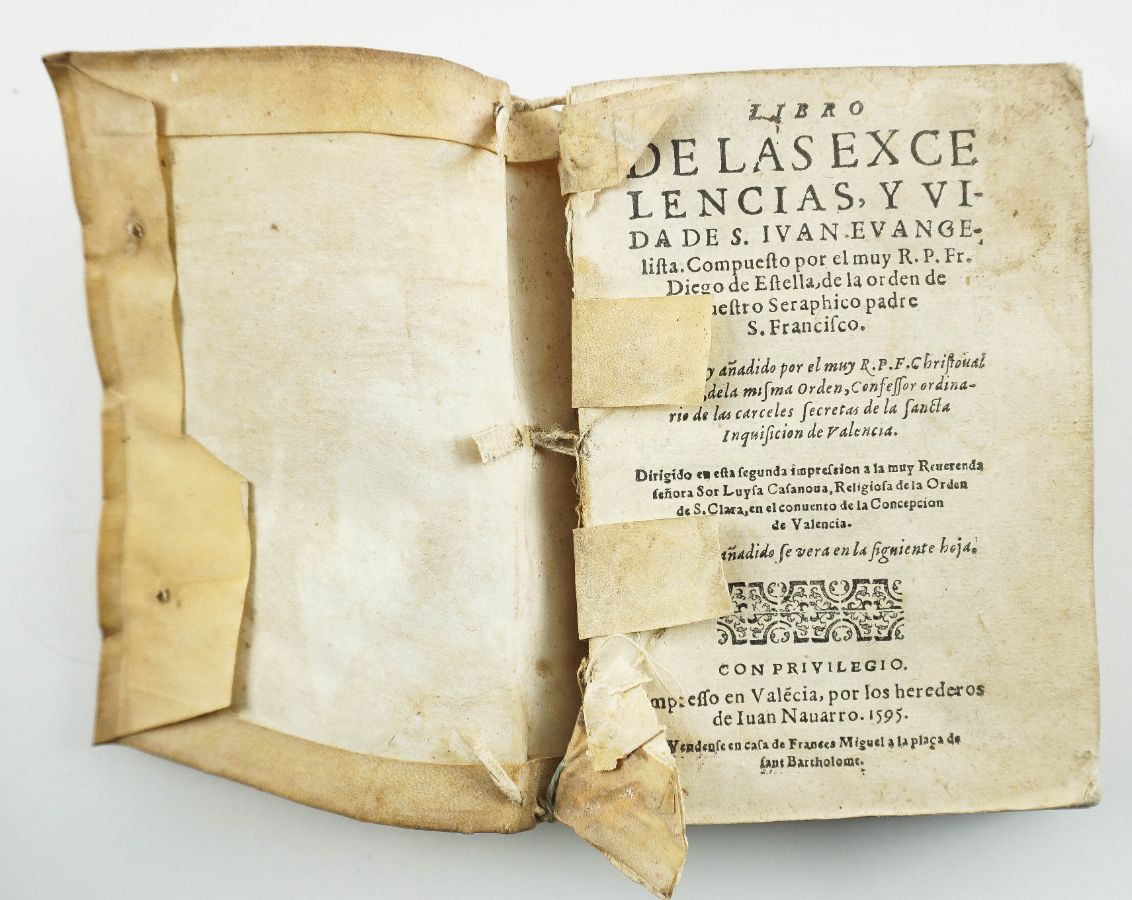 LIBRO
DE LAS EXCE
LENCIAS, Y VI-
DA DE S. IVAN EVANGE-
liſta. Compueſto por el muy R. P. Fr.
Diego de Eſtella, de la orden de
ueſtro Seraphico padre
S. Franciſco.
y añadido por el muy R. P. F. Chriſtoual
, dela miſma Orden, Confeſſor ordina-
rio de las carceles ſecretas de la ſancta
Inquiſicion de Valencia.
Dirigido en eſta ſegunda impreſsion a la muy Reuerenda
ſeñora Sor Luyſa Caſanoua, Religioſa de la Orden
de S. Clara, en el conuento de la Concepcion
de Valencia.
añadido ſe vera en la ſiguiente hoja.
CON PRIVILEGIO.
mpreſſo en Valẽcia, por los herederos
de Iuan Nauarro. 1595.
Vendenſe en caſa de Frances Miguel a la plaça de
ſant Bartholome.